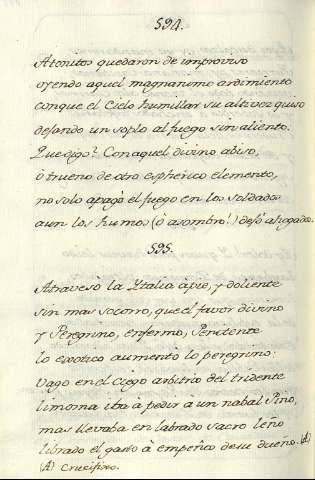 594.
Atonitos quedaron de improviso
oyendo aquel magnanimo ardimiento
conque el Cielo humillar su altivez quiso
dejando un soplo al fuego sin aliento.
Que digo? Con aquel divino abiso,
ò trueno de otro espherico elemento,
no solo apagò el fuego en los soldados
aun los humos (ò asombro!) dejò ahogados.
595.
Atravesò la Italia à pie, y doliente
sin mas socorro, que el favor divino
y Peregrino, enfermo, Penitente
lo exotico aumentò lo peregrino:
Vago en el ciego arbitrio del tridente
limosna iba à pedir à un nabal Pino,
mas llevaba en labrado sacro leño
librado el gasto à empeños de su dueño. (A)
(A) Crucifixo.